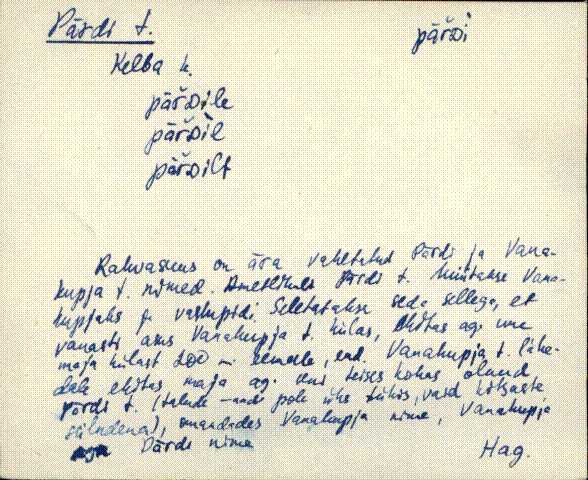 Pärdi t. pär̆Di
Kelba k.
pär̆Dile
pär̆Dil
pär̆Dilt
Rahvasuus on ära vahetatud Pärdi ja Vana-
kupja t. nimed. Ametlikult Pärdi t. hüütakse Vana-
kupjaks ja vastupidi. Seletatakse seda sellega, et
vanasti asus Vanakupja t. külas, ehitas aga uue
maja külast 200 m eemale, end. Vanakupja t. lähe-
dale ehitas maja aga kuni teises kohas olnud
Pärdi t. (talude -nad pole ühe tükis, vaid kitsaste
siiludena), omandades Vanakupja nime, Vanakupja
aga Pärdi nime
Hag.